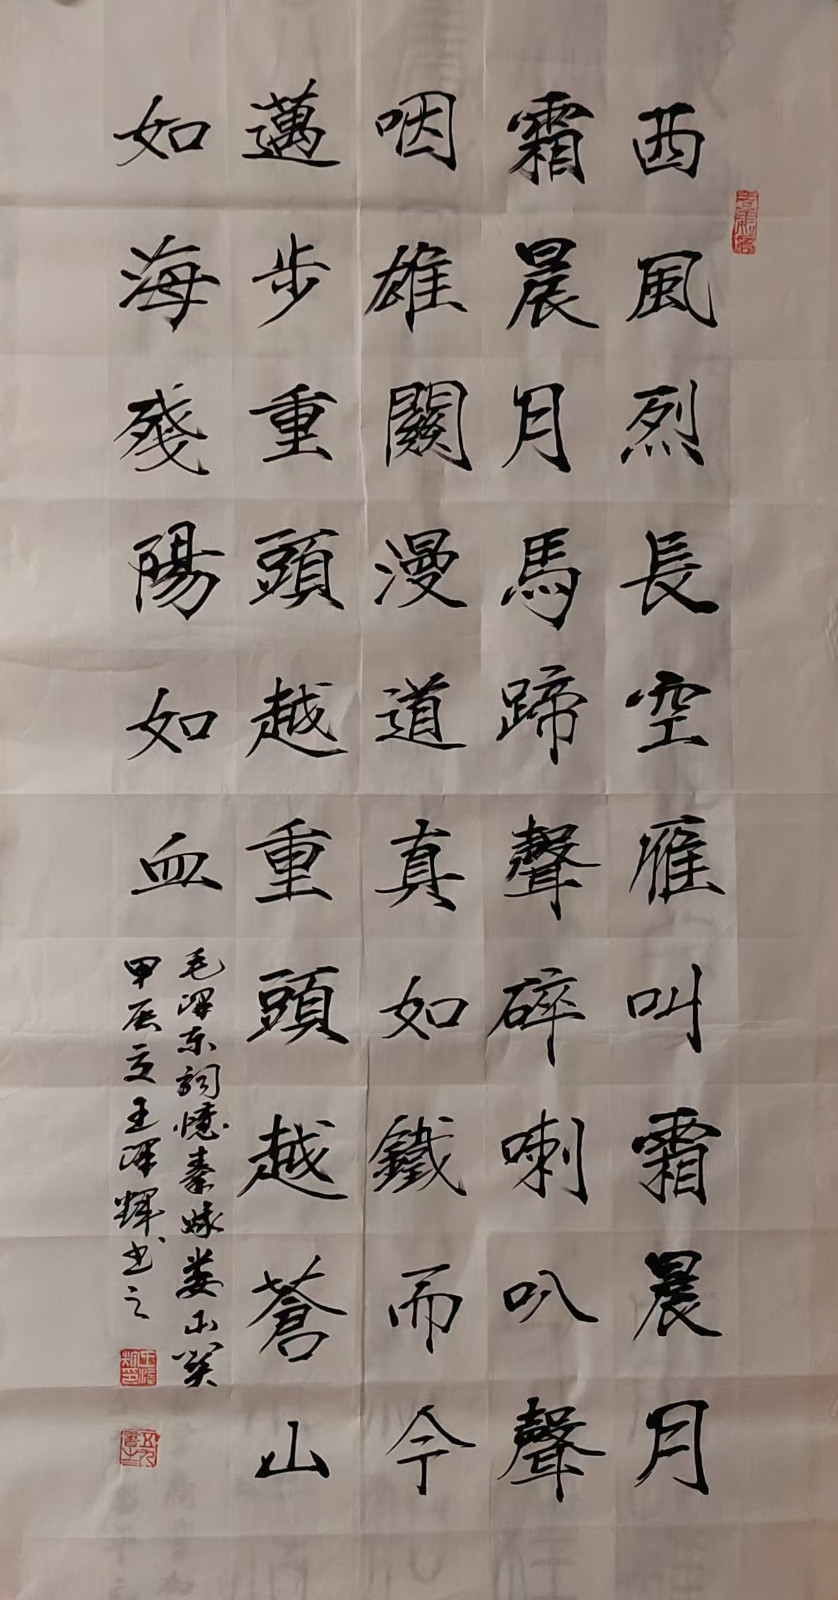 西風烈長空雁叫霜晨月
霜晨月馬蹄聲碎喇叭聲
咽雄關漫道真如鐵而今
邁步重頭越重頭越蒼山
如海殘陽如血
毛澤东詞憶秦娥娄山関
甲辰夏王澤輝书之